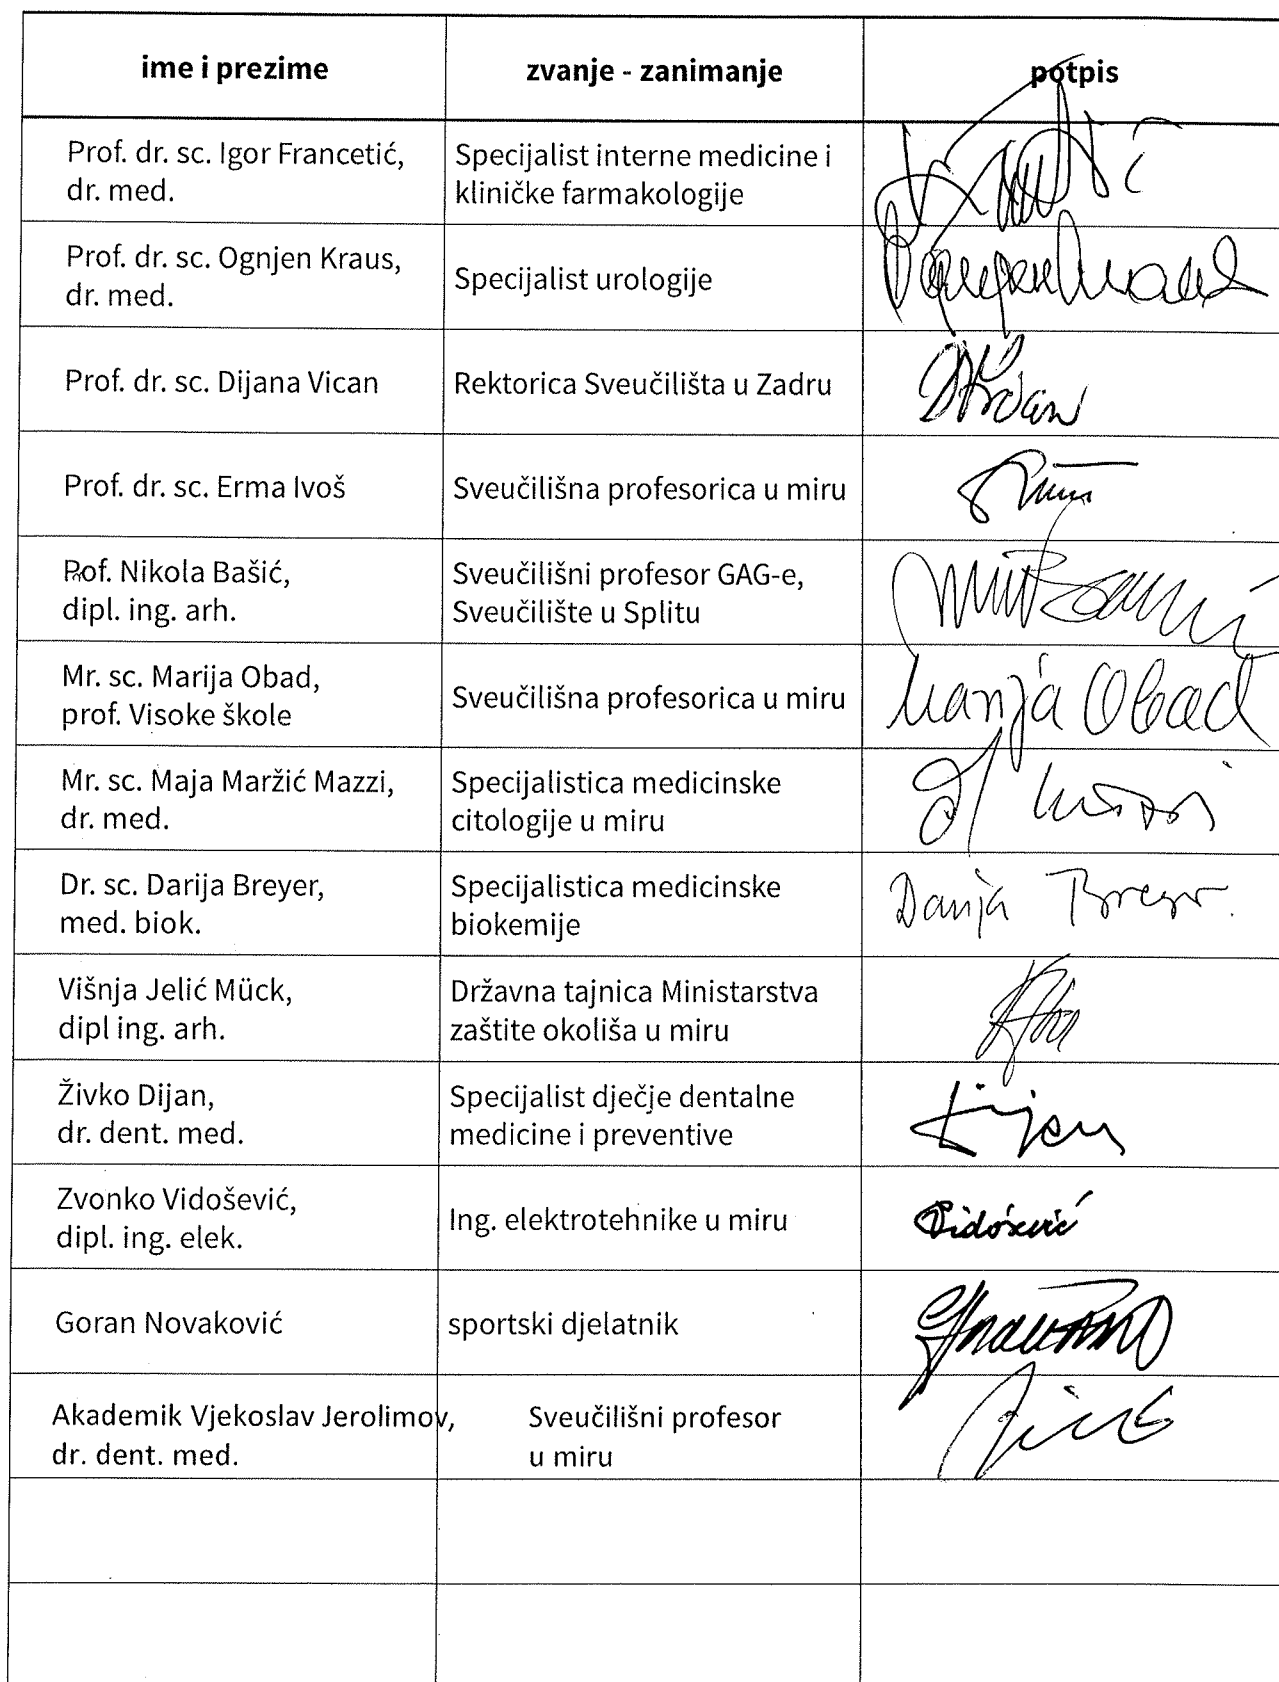 ime i prezime
zvanje - zanimanje
potpis
Prof. dr. sc. Igor Francetić,
dr. med.
Specijalist interne medicine i
kliničke farmakologije
Prof. dr. sc. Ognjen Kraus,
dr. med.
Specijalist urologije
Prof. dr. sc. Dijana Vican
Rektorica Sveučilišta u Zadru
Prof. dr. sc. Erma Ivoš
Sveučilišna profesorica u miru
Prof. Nikola Bašić,
dipl. ing. arh.
Sveučilišni profesor GAG-e,
Sveučilište u Splitu
Mr. sc. Marija Obad,
prof. Visoke škole
Sveučilišna profesorica u miru
Marija Obad
Mr. sc. Maja Maržić Mazzi,
dr. med.
Specijalistica medicinske
citologije u miru
Dr. sc. Darija Breyer,
med. biok.
Specijalistica medicinske
biokemije
Darija Breyer
Višnja Jelić Mück,
dipl ing. arh.
Državna tajnica Ministarstva
zaštite okoliša u miru
Živko Dijan,
dr. dent. med.
Specijalist dječje dentalne
medicine i preventive
Zvonko Vidošević,
dipl. ing. elek.
Ing. elektrotehnike u miru
Vidošević
Goran Novaković
sportski djelatnik
Akademik Vjekoslav Jerolimov,
dr. dent. med.
Sveučilišni profesor
u miru